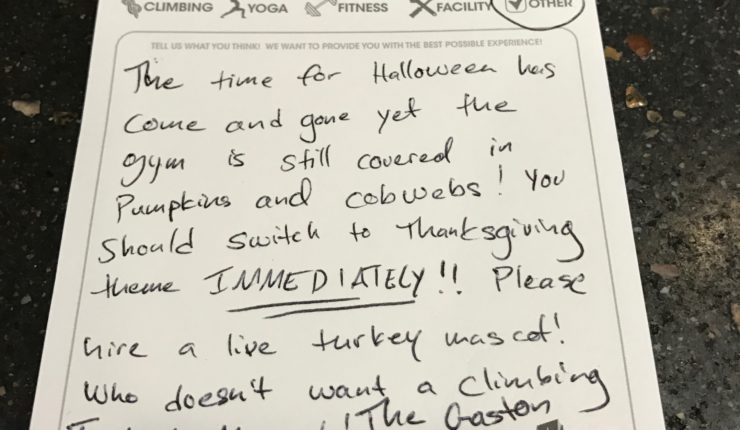 CLIMBING YOGA FITNESS FACILITY OTHER
TELL US WHAT YOU THINK! WE WANT TO PROVIDE YOU WITH THE BEST POSSIBLE EXPERIENCE!
The time for Halloween has
come and gone yet the
gym is still covered in
Pumpkins and cobwebs! You
Should switch to Thanksgiving
theme IMMEDIATELY!! Please
hire a live turkey mascot!
Who doesn't want a Climbing
The Gaston